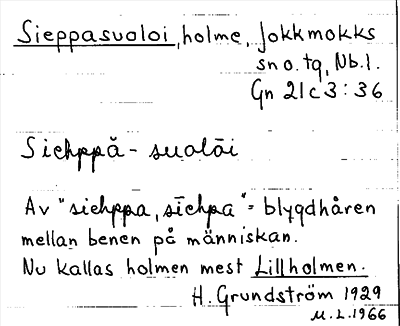 Sieppasuoloi, holme, Jokkmokks
sn o. tg, Nb. l.
Gn 21 c 3 : 36
Siehppă - suolōi
Av "siehppa, siēhpa" = blygdhåren
mellan benen på människan.
Nu kallas holmen mest Lillholmen.
H. Grundström 1929
M. L. 1966